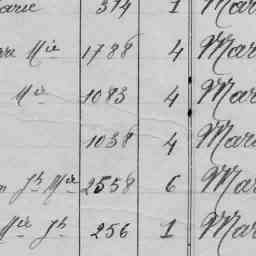 arie 314 1 Mar
re Mie 1788 4 Mar
Mie 1083 4 Mar
1038 4 Mar
n Jh Mie 2558 6 Mar
Mie Jh 256 1 Mar